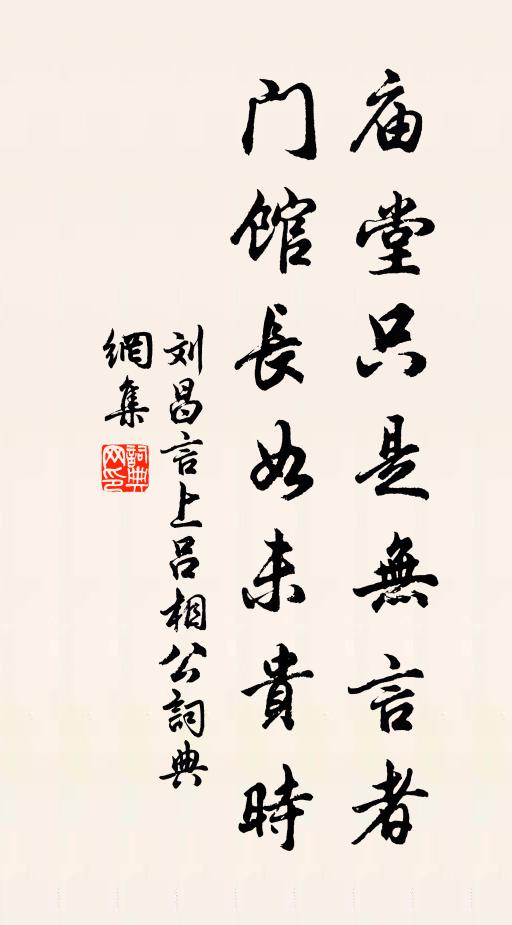 庙堂只是無言者
门馆長如未貴時
刘昌言上吕相公詞典
網集
詞典
网印